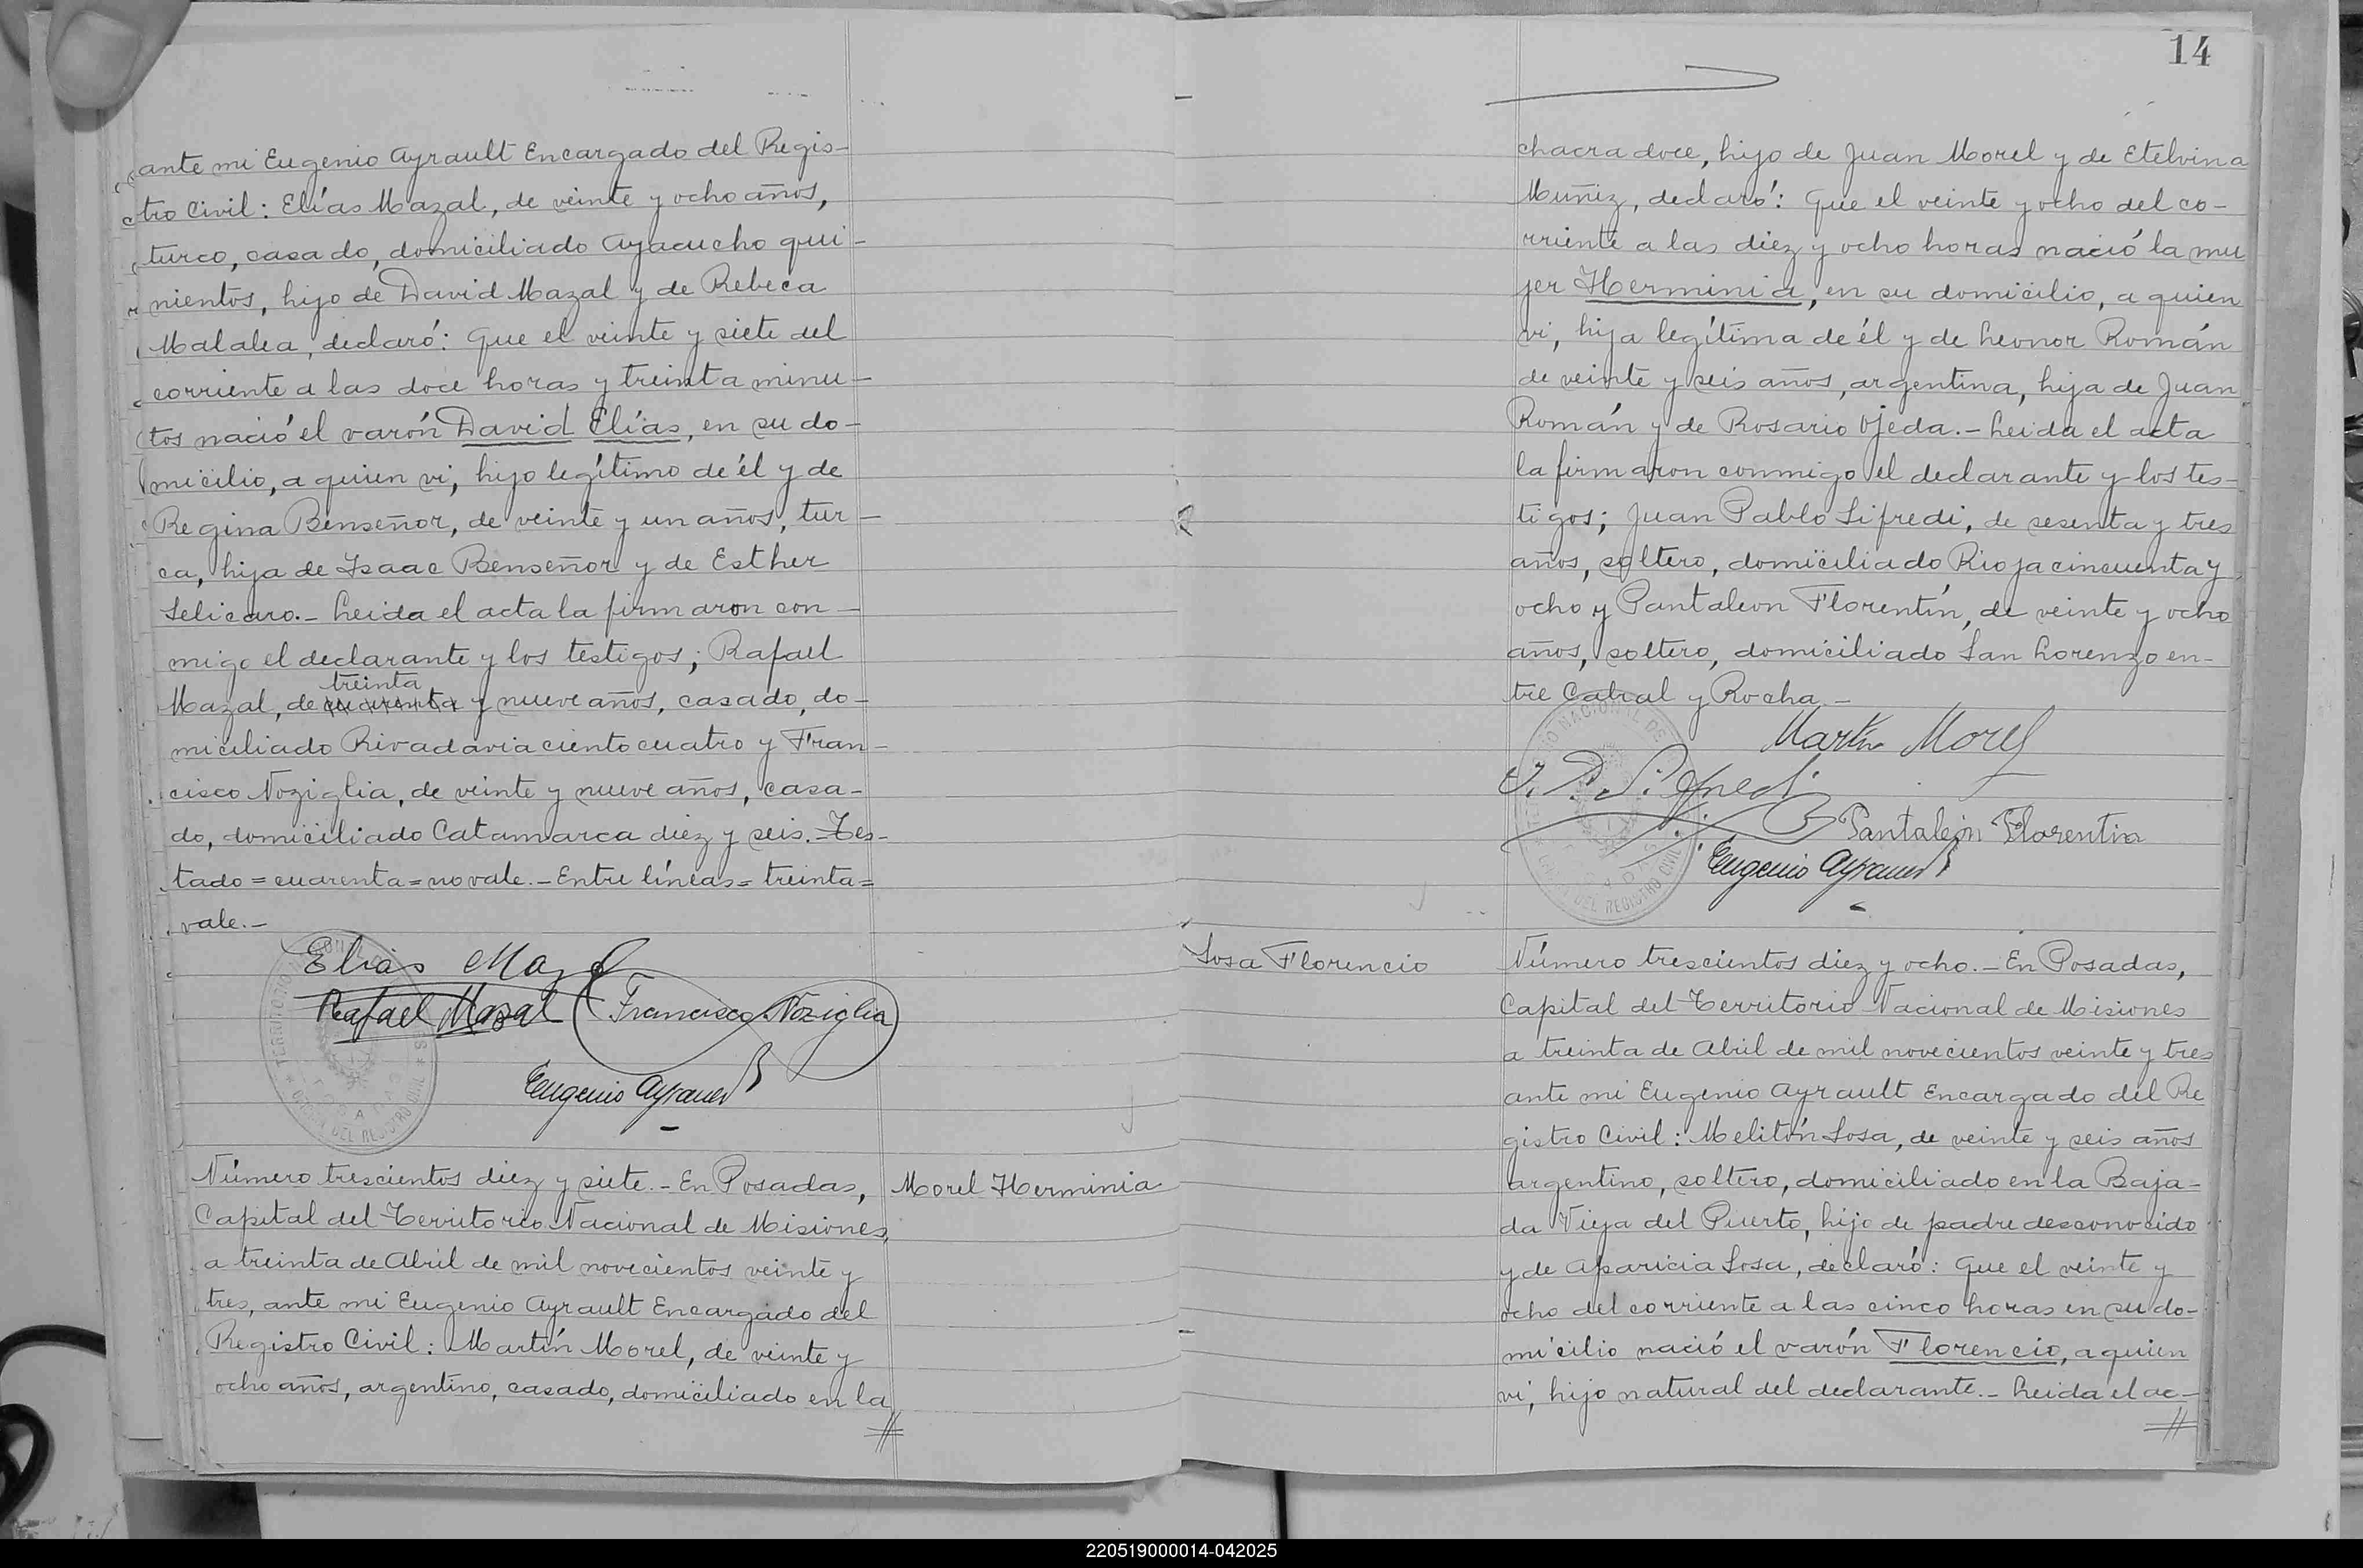 ante mi Eugenio Ayrault Encargado del Regis-
tro Civil: Elías Mazal, de veinte y ocho años,
turco, casado, domiciliado Ayacucho qui-
nientos, hijo de David Mazal y de Rebeca
Malalea, declaró: Que el veinte y siete del
corriente a las doce horas y treinta minu-
tos nació el varón David Elías, en su do-
micilio, a quien vi, hijo legítimo de él y de
Regina Benseñor, de veinte y un años, tur-
ca, hija de Isaac Benseñor y de Esther
Selicaro.- Leida el acta la firmaron con-
migo el declarante y los testigos; Rafael
treinta
Mazal, de cuarenta y nueve años, casado, do-
miciliado Rivadavia ciento cuatro y Fran-
cisco Noziglia, de veinte y nueve años, casa-
do, domiciliado Catamarca diez y seis.- Tes-
tado = cuarenta = no vale.- Entre líneas = treinta =
vale.-
Elias Mazal
Rafael Mazal Francisco Noziglia
Eugenio Ayrault
Número trescientos diez y siete.- En Posadas,
Capital del Territorio Nacional de Misiones,
a treinta de Abril de mil novecientos veinte y
tres, ante mi Eugenio Ayrault Encargado del
Registro Civil: Martín Morel, de veinte y
ocho años, argentino, casado, domiciliado en la
Morel Herminia
14
chacra doce, hijo de Juan Morel y de Etelvina
Muñiz, declaró: Que el veinte y ocho del co-
rriente a las diez y ocho horas nació la mu
jer Herminia, en su domicilio, a quien
vi, hija legítima de él y de Leonor Román
de veinte y seis años, argentina, hija de Juan
Román y de Rosario Ojeda.- Leida el acta
la firmaron conmigo el declarante y los tes-
tigos; Juan Pablo Sifredi, de sesenta y tres
años, soltero, domiciliado Rioja cincuenta y
ocho y Pantaleon Florentín, de veinte y ocho
años, soltero, domiciliado San Lorenzo en-
tre Cabral y Rocha.-
Martín Morel
J. P. Sifredi
Pantaleón Florentin
Eugenio Ayrault
Sosa Florencio
Número trescientos diez y ocho.- En Posadas,
Capital del Territorio Nacional de Misiones
a treinta de Abril de mil novecientos veinte y tres
ante mi Eugenio Ayrault Encargado del Re
gistro Civil: Melitón Sosa, de veinte y seis años
argentino, soltero, domiciliado en la Baja-
da Vieja del Puerto, hijo de padre desconocido
y de Aparicia Sosa, declaró: Que el veinte y
ocho del corriente a las cinco horas en su do-
micilio nació el varón Florencio, a quien
vi, hijo natural del declarante.- Leida el ac-
220519000014-042025